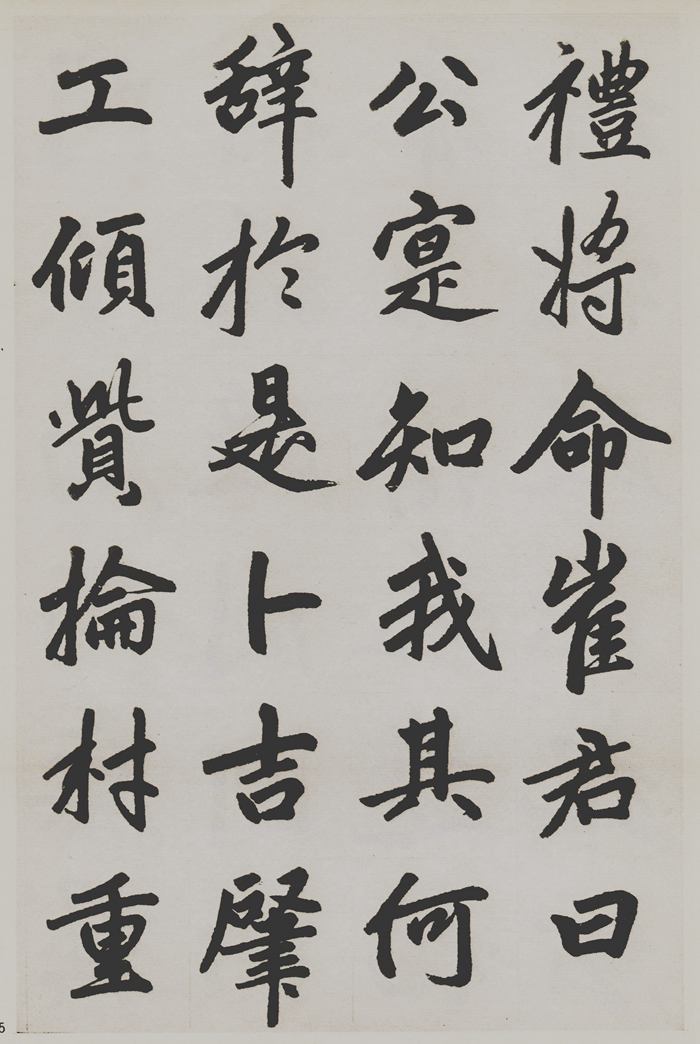 禮將命崔君曰
公寔知我其何
辭於是卜吉肈
工傾貲掄材重
5